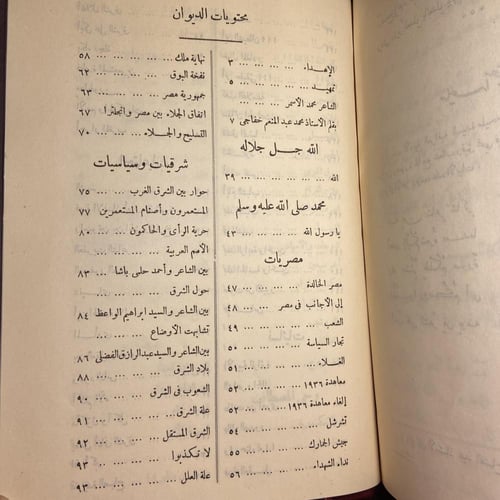 محتويات الديوان
الإهداء ... ... ... ... ... ٣
تمهيد ... ... ... ... ... ٥
الشاعر محمد الأسمر
بقلم الأستاذ محمد عبد المنعم خفاجى ٧
الله جل جلاله
الله ... ... ... ... ... ... ٣٩
محمد صلى الله عليه وسلم
يا رسول الله ... ... ... ... ٤٣
مصريات
مصر الخالدة ... ... ... ... ٤٧
إلى الأجانب فى مصر ... ... ... ٤٨
الشعب ... ... ... ... ... ٤٩
تجار السياسة ... ... ... ... ٥٠
الغلاء ... ... ... ... ... ٥١
معاهدة ١٩٣٦ ... ... ... ... ٥٢
إلغاء معاهدة ١٩٣٦ ... ... ... ٥٢
تشرشل ... ... ... ... ... ٥٤
جيش الجمارك ... ... ... ... ٥٥
نداء الشهداء ... ... ... ... ٥٦
نهاية ملك ... ... ... ... ... ٥٨
نفخة البوق ... ... ... ... ٦٢
جمهورية مصر ... ... ... ... ٦٣
اتفاق الجلاء بين مصر وانجلترا ٦٧
التسليح والجلاء ... ... ... ٧٠
شرقيات وسياسيات
حوار بين الشرق الغرب ... ... ٧٥
المستعمرون وأصنام المستعمرين ٧٧
حرية الرأى والحاكمون ... ... ٨٠
الأمم العربية
بين الشاعر وأحمد حلمى باشا ... ٨٣
حول الشرق
بين الشاعر والسيد ابراهيم الواعظ ٨٤
تشابهت الأوضاع
بين الشاعر والسيد عبد الرازق الفضلى ٨٦
بلاد الشرق ... ... ... ... ٨٨
الشعوب فى الشرق ... ... ... ٩٠
علة الشرق ... ... ... ... ٩١
الشرق المستقل ... ... ... ... ٩٢
لا تكذبوا ... ... ... ... ... ٩٣
علة العلل ... ... ... ... ... ٩٣